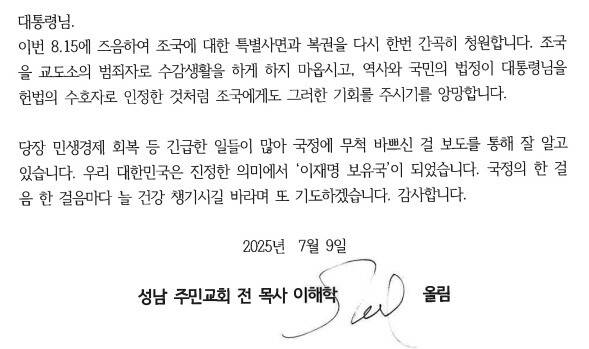 대통령님.
이번 8.15에 즈음하여 조국에 대한 특별사면과 복권을 다시 한번 간곡히 청원합니다. 조국
을 교도소의 범죄자로 수감생활을 하게 하지 마옵시고, 역사와 국민의 법정이 대통령님을
헌법의 수호자로 인정한 것처럼 조국에게도 그러한 기회를 주시기를 앙망합니다.
당장 민생경제 회복 등 긴급한 일들이 많아 국정에 무척 바쁘신 걸 보도를 통해 잘 알고
있습니다. 우리 대한민국은 진정한 의미에서 ‘이재명 보유국’이 되었습니다. 국정의 한 걸
음 한 걸음마다 늘 건강 챙기시길 바라며 또 기도하겠습니다. 감사합니다.
2025년 7월 9일
성남 주민교회 전 목사 이해학 올림